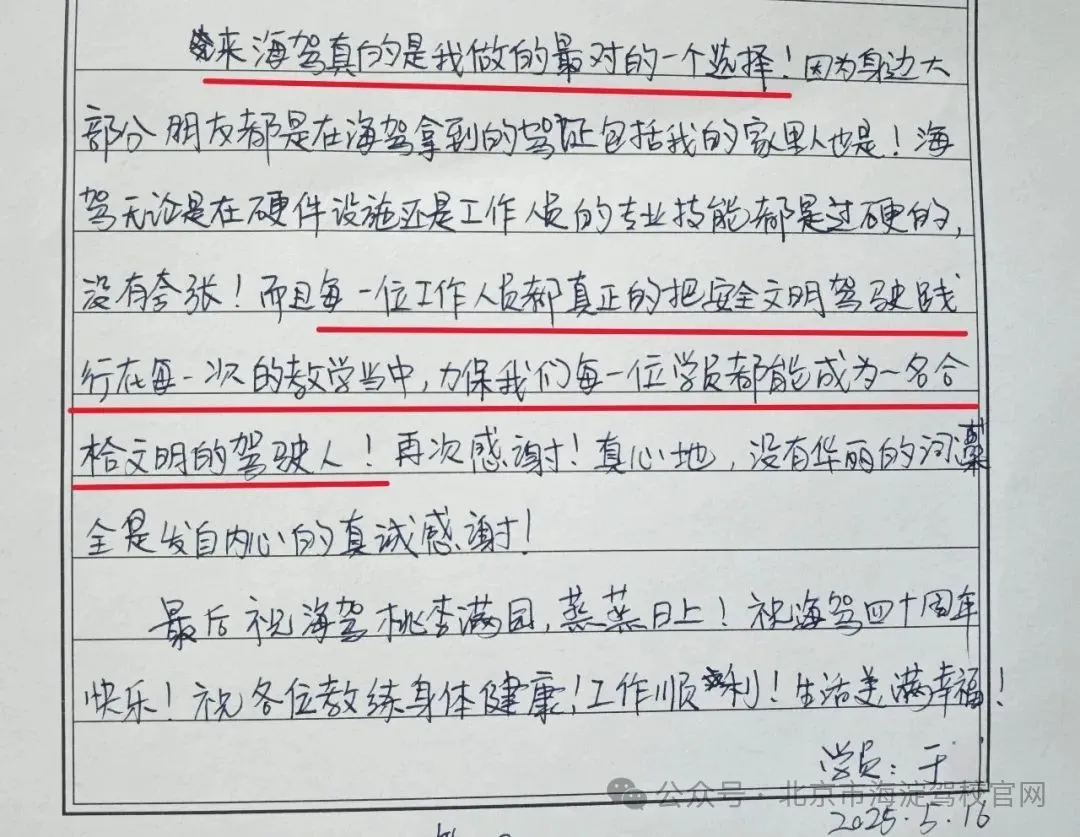 来海驾真的是我做的最对的一个选择！因为身边大
部分朋友都是在海驾拿到的驾证包括我的家里人也是！海
驾无论是在硬件设施还是工作人员的专业技能都是过硬的，
没有夸张！而且每一位工作人员都真正的把安全文明驾驶践
行在每一次的教学当中，力保我们每一位学员都能成为一名合
格文明的驾驶人！再次感谢！真心地，没有华丽的词藻
全是发自内心的真诚感谢！
最后祝海驾桃李满园，蒸蒸日上！祝海驾四十周年
快乐！祝各位教练身体健康！工作顺利！生活美满幸福！
学员：于
公众号·北京市海淀驾校官网
2025.5.16